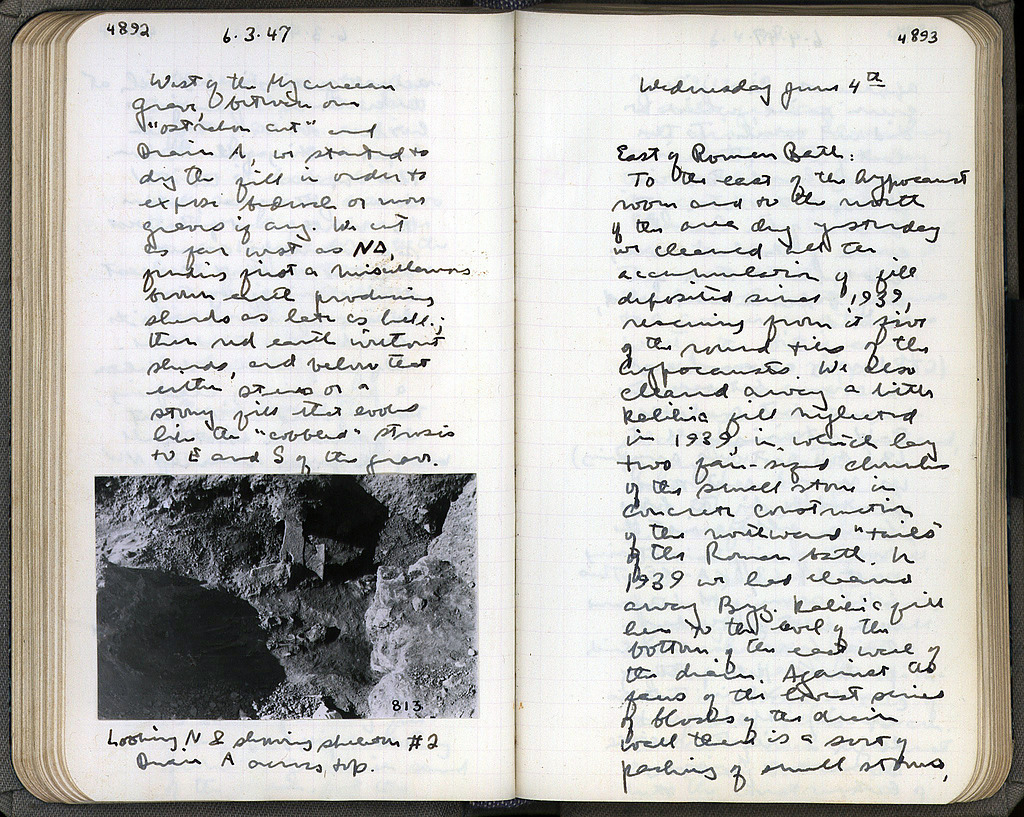 4892
6.3.47
West of the Mycenaean
grave, between our
"ostrakon cut" and
Drain A, we started to
dig the fill in order to
expose bedrock or more
graves if any. We cut
as far west as ND,
finding first a miscellaneous
brown earth producing
sherds as late as hell.;
then red earth without
sherds, and below that
either stereo or a
stony fill that looks
like the "cobbled" strosis
to E and S of the grave.
813
Looking N & showing skeleton #2
Drain A across top.
4893
Wednesday June 4th
East of Roman Bath:
To the east of the hypocaust
room and to the north
of the area dug yesterday
we cleaned all the
accumulation of fill
deposited since 1939,
rescuing from it five
of the round tiles of the
hypocausts. We also
cleaned away a little
fill neglected
in 1939, in which lay
two fair-sized chunks
of the small stone in
concrete construction
of the northward "tails"
of the Roman bath. In
1939 we had cleaned
away Byz. fill
here to the level of the
bottom of the east wall of
the drain. Against the
faces of the lowest series
of blocks of the drain
wall there is a sort of
packing of small stones,